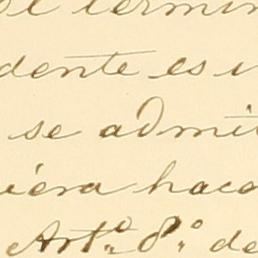 el termin
dente es i
se admit
iera hace
Art.º 8.º de